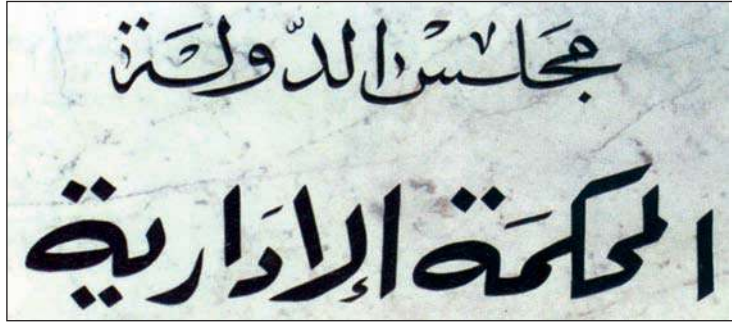 مجَلسْ الدّولَة
المحكمَة الإدَارية